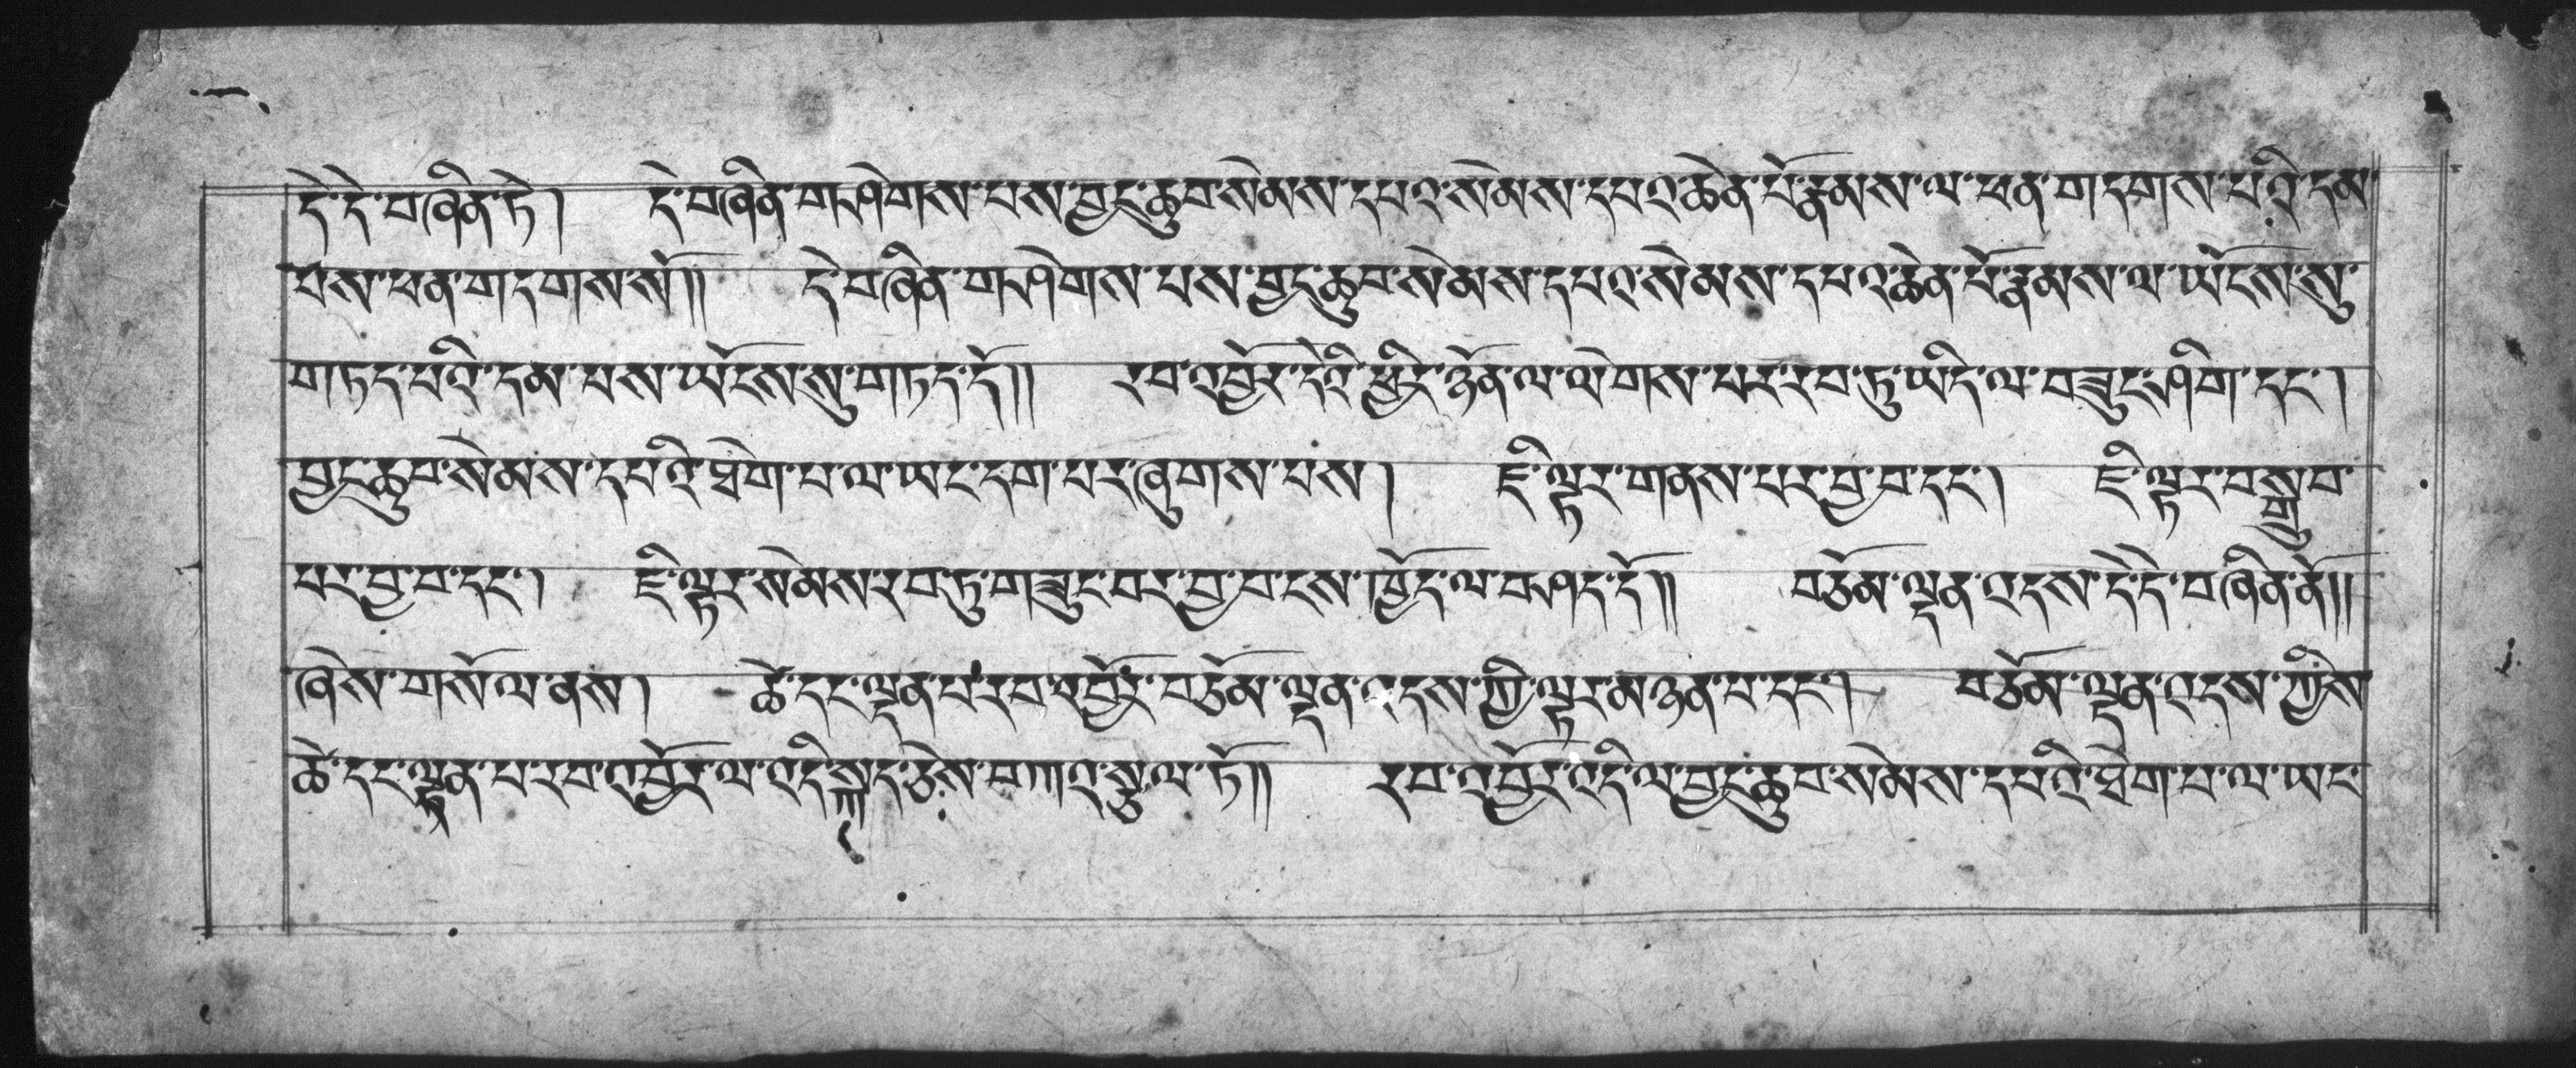 དེ་དེ་བཞིན་ཏེ། དེ་བཞིན་གཤེགས་པས་བྱང་ཆུབ་སེམས་དཔའ་སེམས་དཔའ་ཆེན་པོ་རྣམས་ལ་ཕན་གདགས་པའི་དམ་
པས་ཕན་གདགས་སོ།། དེ་བཞིན་གཤེགས་པས་བྱང་ཆུབ་སེམས་དཔའ་སེམས་དཔའ་ཆེན་པོ་རྣམས་ལ་ཡོངས་སུ་
གཏད་པའི་དམ་པས་ཡོངས་སུ་གཏད་དོ།། རབ་འབྱོར་དེའི་ཕྱིར་ཉོན་ལ་ལེགས་པར་རབ་ཏུ་ཡིད་ལ་བཟུང་ཤིག་དང་།
བྱང་ཆུབ་སེམས་དཔའི་ཐེག་པ་ལ་ཡང་དག་པར་ཞུགས་པས། ཇི་ལྟར་གནས་པར་བྱ་བ་དང་། ཇི་ལྟར་བསྒྲུབ་
པར་བྱ་བ་དང་། ཇི་ལྟར་སེམས་རབ་ཏུ་གཟུང་བར་བྱ་བ་ངས་ཁྱོད་ལ་བཤད་དོ།། བཅོམ་ལྡན་འདས་དེ་དེ་བཞིན་ནོ།།
ཞེས་གསོལ་ནས། ཚེ་དང་ལྡན་པ་རབ་འབྱོར་བཅོམ་ལྡན་འདས་ཀྱི་ལྟར་མཉན་པ་དང་། བཅོམ་ལྡན་འདས་ཀྱིས་
ཚེ་དང་ལྡན་པ་རབ་འབྱོར་ལ་འདི་སྐད་ཅེས་བཀའ་སྩལ་ཏོ།། རབ་འབྱོར་འདི་ལ་བྱང་ཆུབ་སེམས་དཔའི་ཐེག་པ་ལ་ཡང་